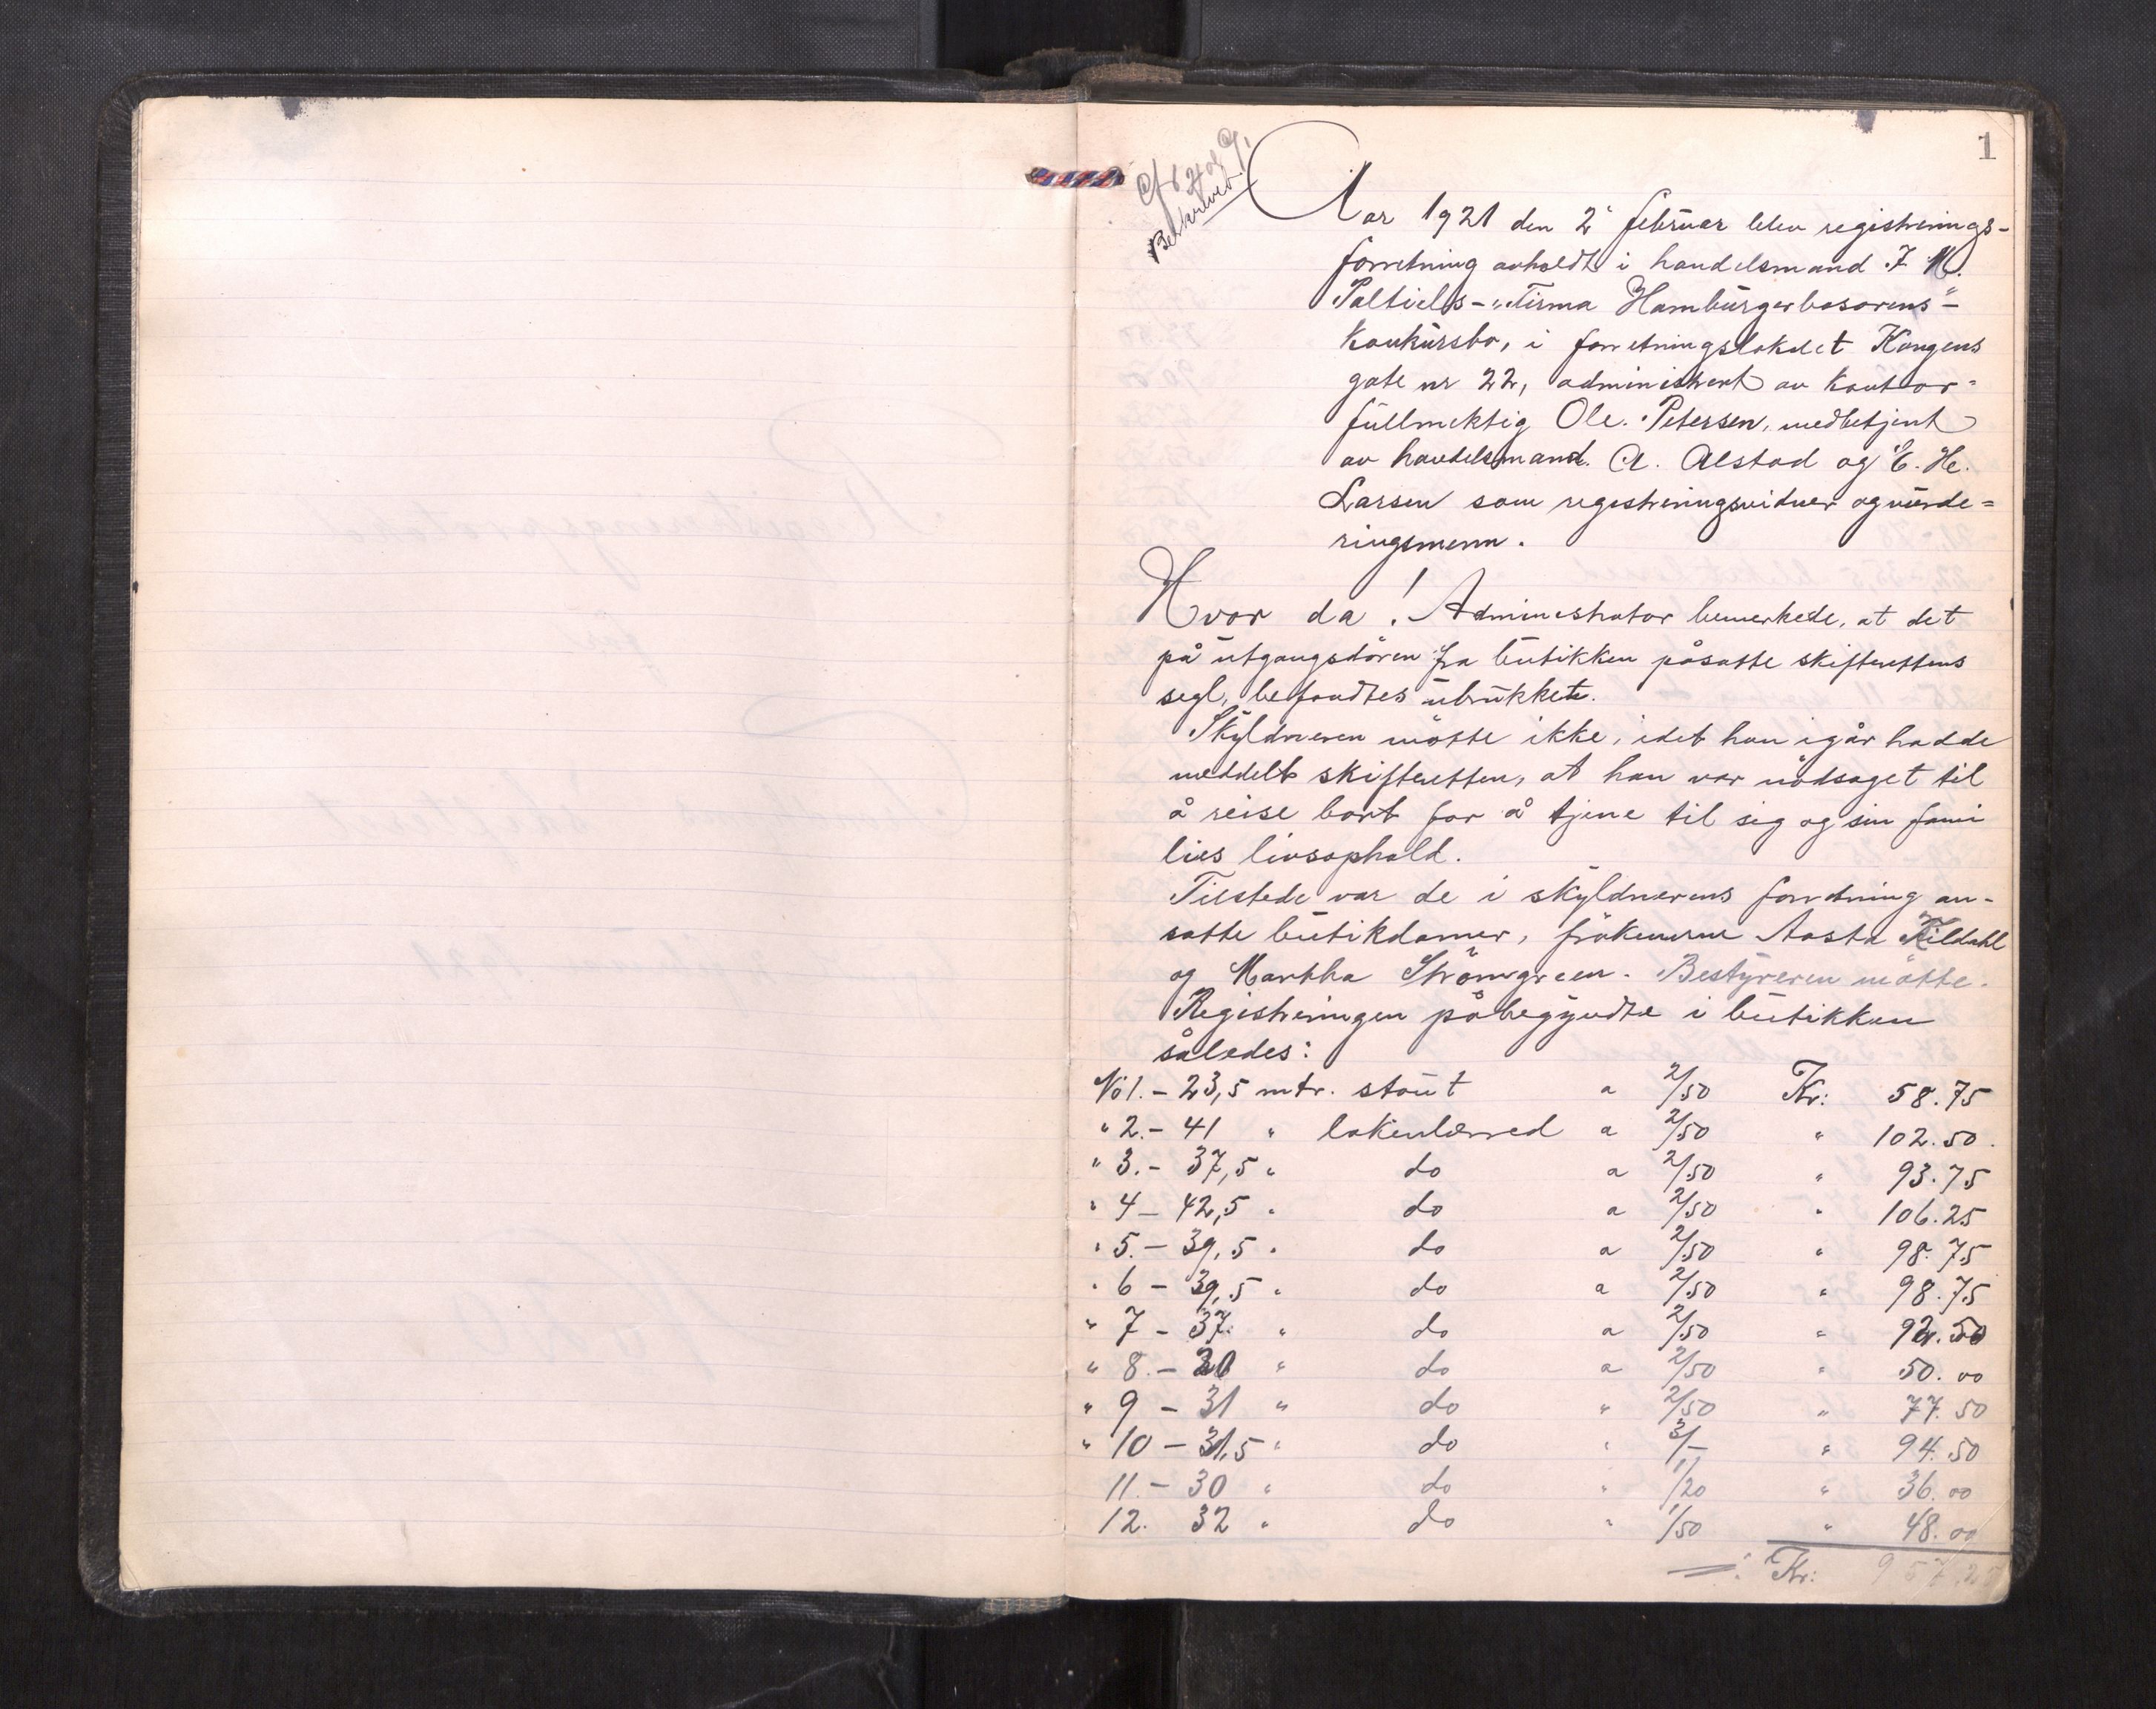 1
Beskrevet
Aar 1921 den 2' februar blev registrerings-
forretning avholdt i handelsmand J. M.
Paltiels - "Firma Hamburgerbasarens" -
konkursbo, i forretningslokalet Kongens
gate nr 22, administrert av kontor-
fullmektig Ole Petersen, medbetjent
av handelsmand. A. Alstad og E. H.
Larsen som registreringsvidner og vurde=
ringsmenn.
Hvor da! Administrator bemerkede, at det
på utgangsdören fra butikken påsatte skifterettens
segl, befandtes ubrukket.
Skyldneren mötte ikke, idet han igår hadde
meddelt skifteretten, at han var nödsaget til
å reise bort for å tjene til sig og sin fami
lies livsophold.
Tilstede var de i skyldnerens forretning an-
satte butikdamer, frökenerne Aasta Kildahl
og Martha Strömgreen. Bestyreren mötte.
Registreringen påbegyndte i butikken
således:
No 1. - 23,5 mtr. stout a 2/50 Kr: 58.75
" 2. - 41 " lakenlerred a 2/50 " 102.50.
" 3. - 37,5 " do a 2/50 " 93.75
" 4 - 42,5 " do a 2/50 " 106.25
" 5. - 39,5 " do a 2/50 " 98.75
" 6 - 39,5 " do a 2/50 " 98.75
" 7 - 37. " do a 2/50 " 92.50
" 8. - 20 " do a 2/50 " 50.00
" 9 - 31 " do " 2/50 " 77.50
" 10 - 31,5 " do " 3/- " 94.50
11. - 30 " do " 1/20 " 36.00
12. 32 " do " 1/50 " 48.00
Kr: 957.25